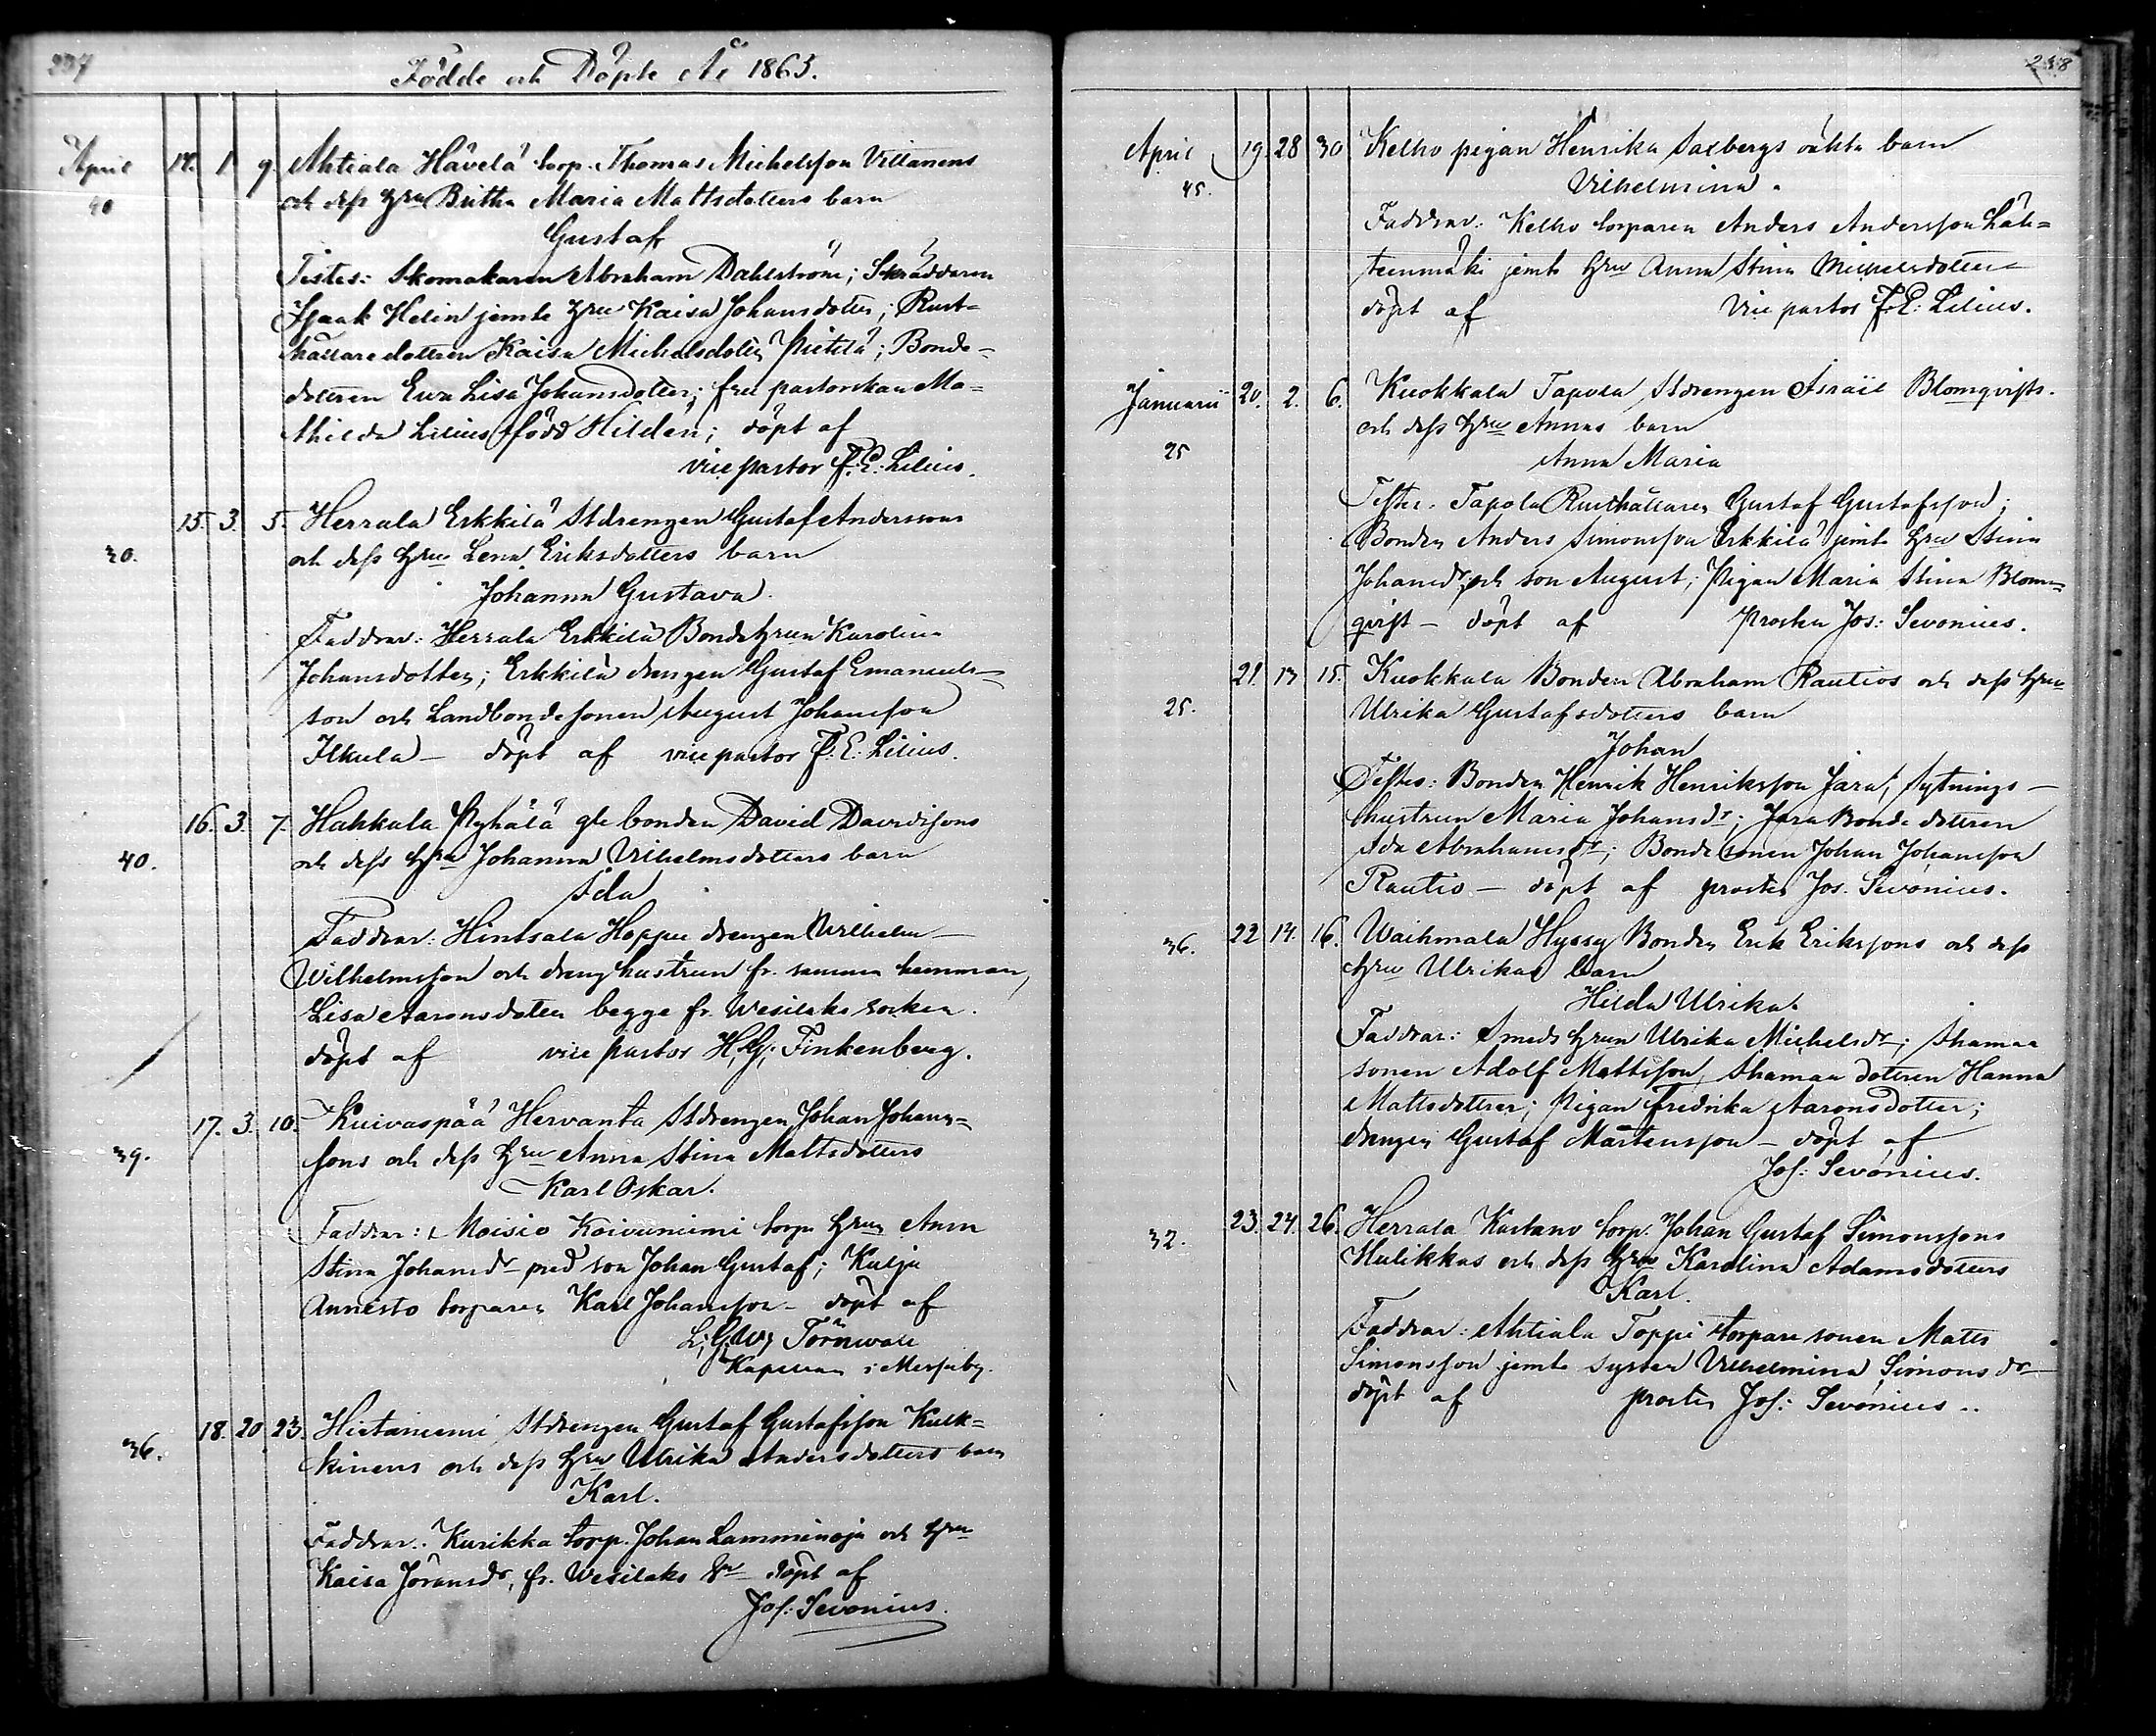 237
Födde och Döpte År 1863.
April 14. 1 9. Ahtiala Hävelä torp. Thomas Michelsson Villanens
40 och dess Hru Britha Maria Mattsdotters barn
Gustaf
Testes: Skomakaren Abraham Dahlström; Skräddaren
Isaak Helin jemte Hru Kaisa Johansdotter; Rust-
hållaredottren Kaisa Michelsdotter Pietilä; Bonde-
dottren Ewa Lisa Johansdotter; fru pastorskan Ma-
thilda Lilius född Hildén; döpt af
vice pastor F. E: Lilius.
15. 3. 5. Herrala Erkkilä Stdrengen Gustaf Anderssons
30. och dess Hru Lena Eriksdotters barn
Johanna Gustava.
Faddrar: Herrala Erkkilä Bonde Hrun Karolina
Johansdotter; Erkkilä drengen Gustaf Emanuels-
son och Landbondesonen August Johansson
Ilkula – döpt af vice pastor F: E: Lilius.
16. 3. 7. Hakkala Pyhälä gle bonden David Davidssons
40. och dess Hru Johanna Vilhelmsdotters barn
Ida
Faddrar: Hintsala Hoppu drengen Wilhelm
Wilhelmsson och drenghustrun fr. samma hemman,
Lisa Aaronsdotter begge fr. Wesilaks socken.
döpt af vice pastor H. G. Finkenberg.
17. 3. 10. Kuivaspää Hervanta Stdrengen Johan Johans-
39. sons och dess Hru Anna Stina Mattsdotters
Karl Oskar.
Faddrar: Moisio Koivuniemi torp. Hrun Anna
Stina Johansdr med son Johan Gustaf; Kulju
Annisto torparen Karl Johansson – döpt af
L. G. W. Törnwall
Kapellan i Messuby.
18. 20 23. Hietaniemi Stdrengen Gustaf Gustafsson Kulk-
36. kinens och dess Hru Ulrika Andersdotters barn
Karl.
Faddrar: Kurikka torp. Johan Lamminoja och Hru
Kaisa Jöransdr, fr. Wesilaks Sn döpt af
Jos: Sevonius.
238
April 19. 28 30 Kelho pigan Henrika Saxbergs oäkta barn
45. Vilhelmina.
Faddrar: Kelho torparen Anders Andersson Läh-
teenmäki jemte Hru Anna Stina Michelsdotter
döpt af Vice pastor F. E: Lilius.
Januarii 20. 2. 6. Kuokkala Tapola Stdrengen Israil Blomqvists.
och dess Hru Annas barn
25 Anna Maria
Testes. Tapola Rusthållaren Gustaf Gustafsson;
Bonden Anders Simonsson Erkkilä jemte Hru Stina
Johansdr, och son August; Pigan Maria Stina Blom-
qvist – döpt af Prosten Jos: Sevonius.
21. 13 15. Kuokkala Bonden Abraham Rautios och dess Hru
25. Ulrika Gustafsdotters barn
Johan
Testes: Bonden Henrik Henriksson Jara; Sytnings-
hustrun Maria Johansdr; Jara Bonde dottren
Ida Abrahamsdr; Bonde sonen Johan Johansson
Rautio – döpt af prosten Jos. Sevonius.
36. 22 14. 16. Waihmala Hyssy Bonden Erik Erikssons och dess
Hru Ulrikas barn
Hilda Ulrika.
Faddrar: Smeds Hrun Ulrika Michelsdr;
sonen Adolf Mattsson, dottren Hanna
Mattsdotter; Pigan Fredrika Aaronsdotter;
drengen Gustaf Mårtensson – döpt af
Jos: Sevonius.
32. 23. 24. 26. Herrala Kustano torp. Johan Gustaf Simonssons
Hulikkas och dess Hru Karolina Adamsdotters
Karl.
Faddrar: Ahtiala Toppi torpare sonen Matts
Simonsson jemte syster Vilhelmina Simonsdr
döpt af prosten Jos: Sevonius..